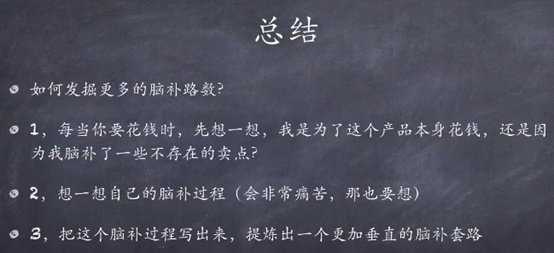 总结
如何发掘更多的脑补路数?
1，每当你要花钱时，先想一想，我是为了这个产品本身花钱，还是因
为我脑补了一些不存在的卖点?
2，想一想自己的脑补过程（会非常痛苦，那也要想）
3，把这个脑补过程写出来，提炼出一个更加垂直的脑补套路